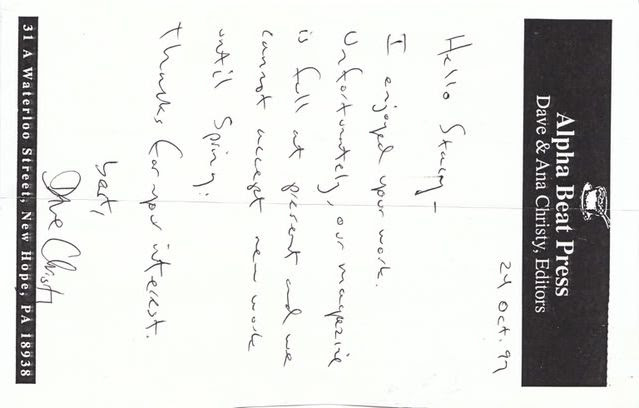 Alpha Beat Press
Dave & Ana Christy, Editors
24 Oct. 97
Hello Stacey -
I enjoyed your work.
Unfortunately, our magazine
is full at present and we
cannot accept new work
until Spring.
Thanks for your interest.
best,
Dave Christy
31 A Waterloo Street, New Hope, PA 18938